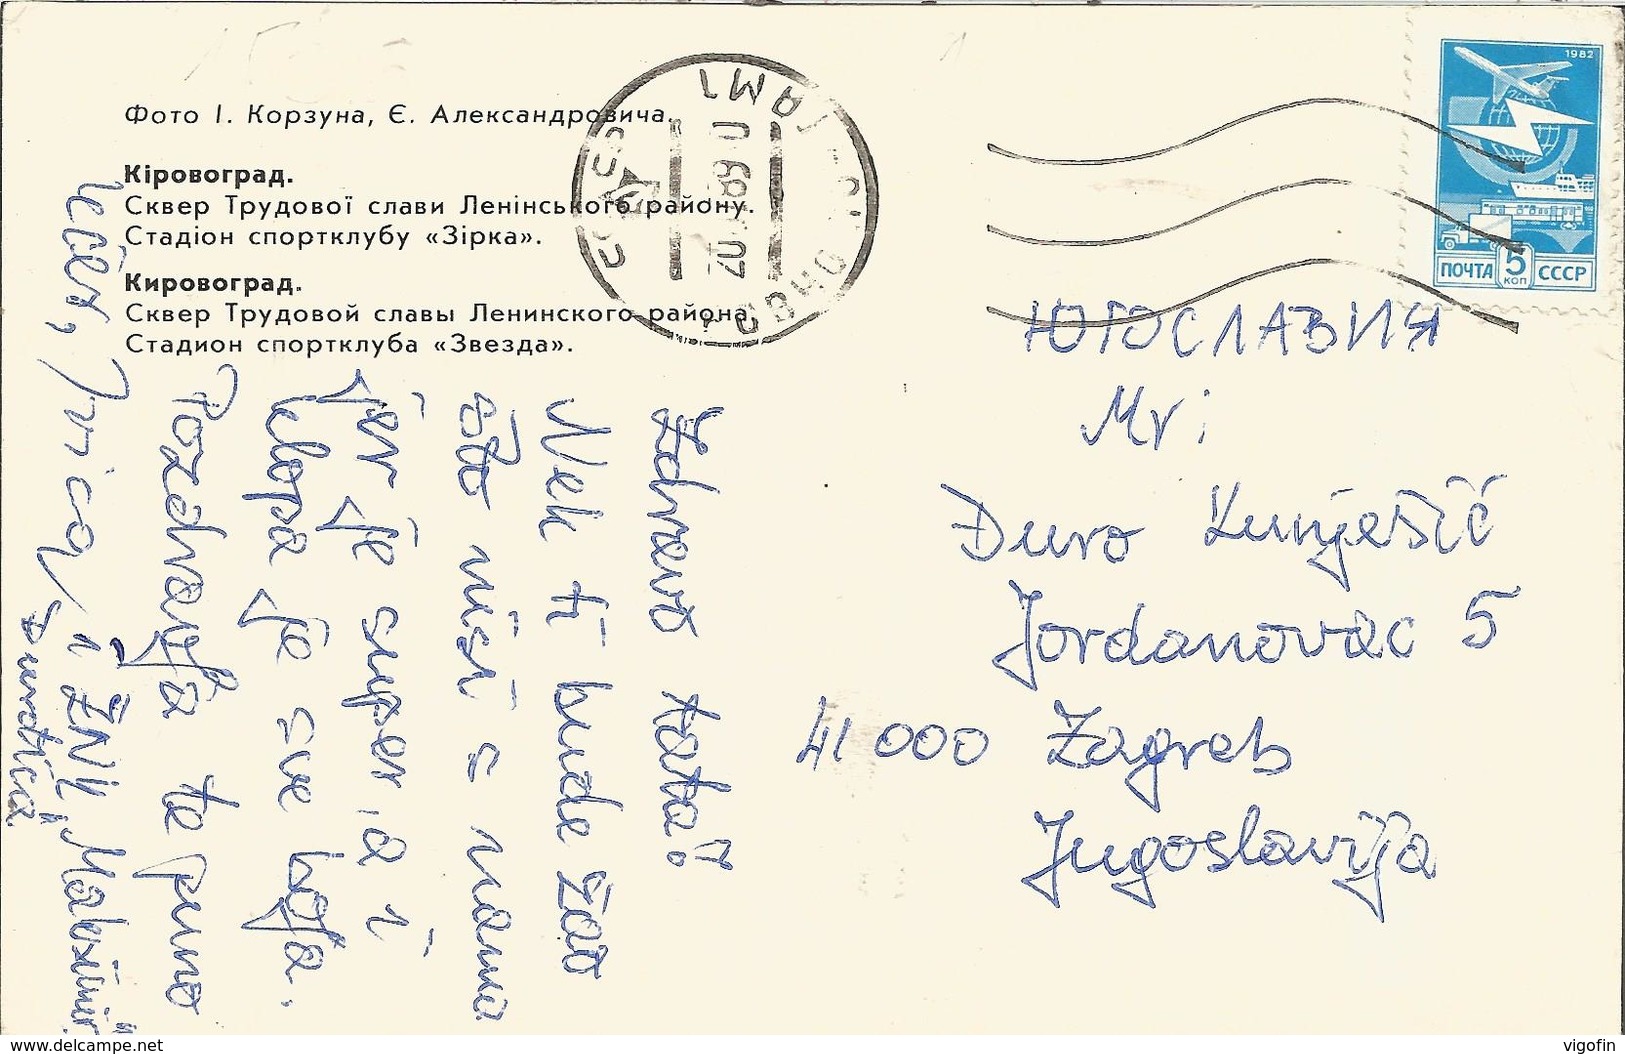 Фото І. Корзуна, Є. Александровича.
Кіровоград.
Сквер Трудової слави Ленінського району.
Стадіон спортклубу «Зірка».
Кировоград.
Сквер Трудовой славы Ленинского района.
Стадион спортклуба «Звезда».
1982
ПОЧТА 5 КОП СССР
ЮГОСЛАВИЯ
Mr:
Đuro Kunješić
Jordanovac 5
41 000 Zagreb
Jugoslavija
Zdravo tata!
Nek ti bude žao
što nisi s nama
jer je super, a i
klopa je sve bolja.
Pozdravlja te puno
i ŽNK „Maksimir"
Đurđica
delcampe.net
vigofin